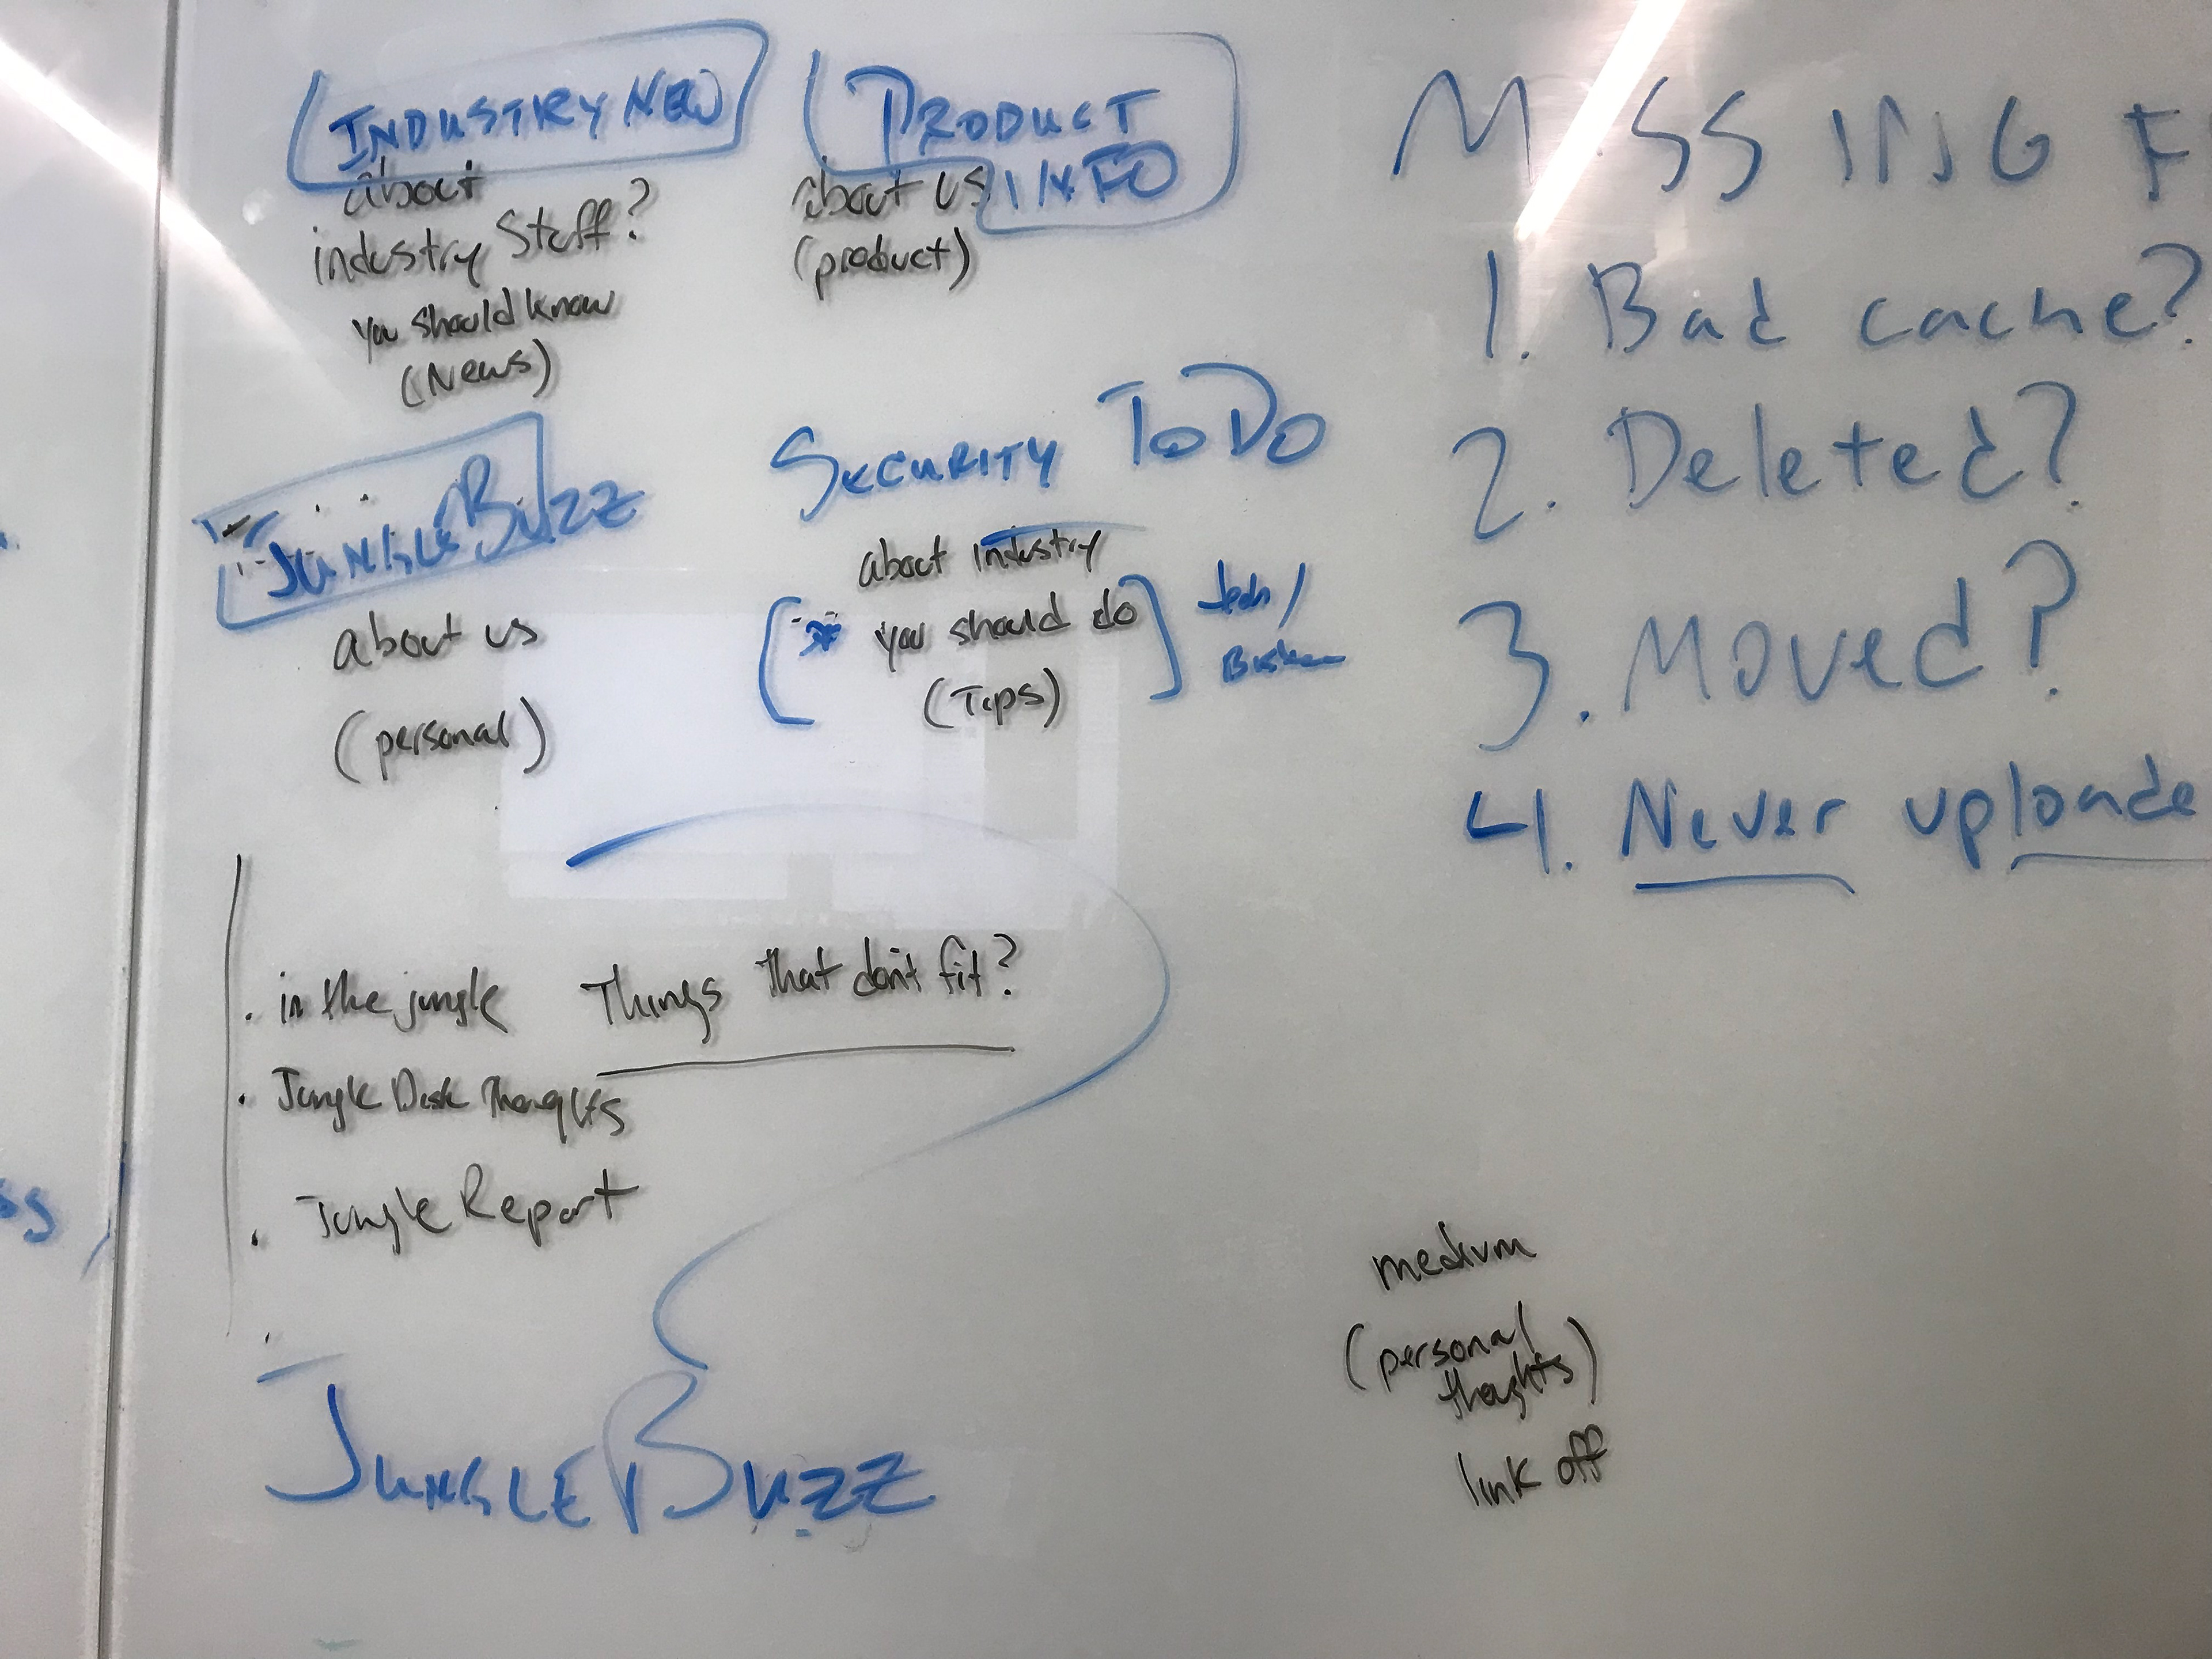 INDUSTRY NEW
about
industry stuff?
you should know
(News)
PRODUCT
INFO
about us
(product)
JUNGLEBUZZ
about us
(personal)
SECURITY TODO
about industry
you should do
(Tips)
tech/
MISSING F
1. Bad cache?
2. Deleted?
3. Moved?
4. Never uploade
Things that don't fit?
. in the jungle
. Jungle Disk Thoughts
. Jungle Report
JUNGLEBUZZ
medium
(personal
thoughts)
link off